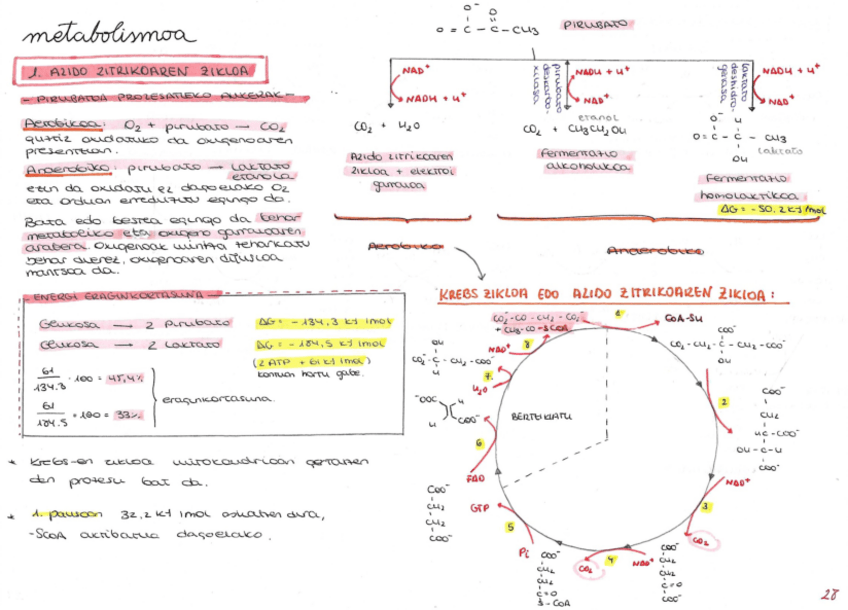 metabolismoa
1. AZIDO ZITRIKOAREN ZIKLOA
- PIRUBATOA PROZESATZEKO AUKERAK -
Aerobikoa: O₂ + pirubato → CO₂
guztiz oxidatuko da oxigenoaren
presentzian.
Anaerobiko: pirubato → laktato
etanola
ezin da oxidatu ez dagoelako O₂
eta orduan erreduzitu egingo da.
Bata edo bestea egingo da behar
metaboliko eta oxigeno garraioaren
arabera. Oxigenoak mintza zeharkatu
behar duenez, oxigenoaren difusioa
mantsoa da.
- ENERGI ERAGINKORTASUNA -
Glukosa → 2 Pirubato
ΔG = - 134,3 kJ/mol
Glukosa → 2 Laktato
ΔG = - 184,5 kJ/mol
(2 ATP + 61 kJ/mol)
kontuan hartu gabe.
61/134.3 · 100 = 45,4%
61/184.5 · 100 = 33%
eraginkortasuna.
* Krebs-en zikloa mitokondrioan gertatzen
den prozesu bat da.
* 1. pausoan 32,2 kJ/mol askatzen dira,
-SCoA aktibatua dagoelako.
O⁻ O
O = C - C - CH₃
PIRUBATO
NAD⁺
NADH + H⁺
pirubato deskarboxilasa
NADH + H⁺
NAD⁺
laktato deshidrogenasa
NADH + H⁺
NAD⁺
CO₂ + H₂O
etanol
CO₂ + CH₃CH₂OH
O⁻ H
O = C - C - CH₃
OH
laktato
Azido zitrikoaren
zikloa + elektroi
garraioa
Fermentazio
alkoholikoa
Fermentazio
homolaktikoa
ΔG = - 50,2 kJ/mol
Aerobiko
Anaerobiko
KREBS ZIKLOA EDO AZIDO ZITRIKOAREN ZIKLOA :
CO₂⁻-CO-CH₂-CO₂⁻
+ CH₃-CO-SCoA
1
CoA-SH
COO⁻
CO₂⁻-CH₂-C-CH₂-COO⁻
OH
2
COO⁻
CH₂
HC-COO⁻
OH-C-H
COO⁻
NAD⁺
3
CO₂
COO⁻
CH₂
CH₂
C=O
COO⁻
NAD⁺
4
CO₂
COO⁻
CH₂
CH₂
C=O
S-CoA
Pi
5
GTP
COO⁻
CH₂
CH₂
COO⁻
FAD
6
⁻OOC
H
H
COO⁻
H₂O
7
H
CO₂⁻-C-CH₂-COO⁻
OH
NAD⁺
8
BERTSIKATU
28